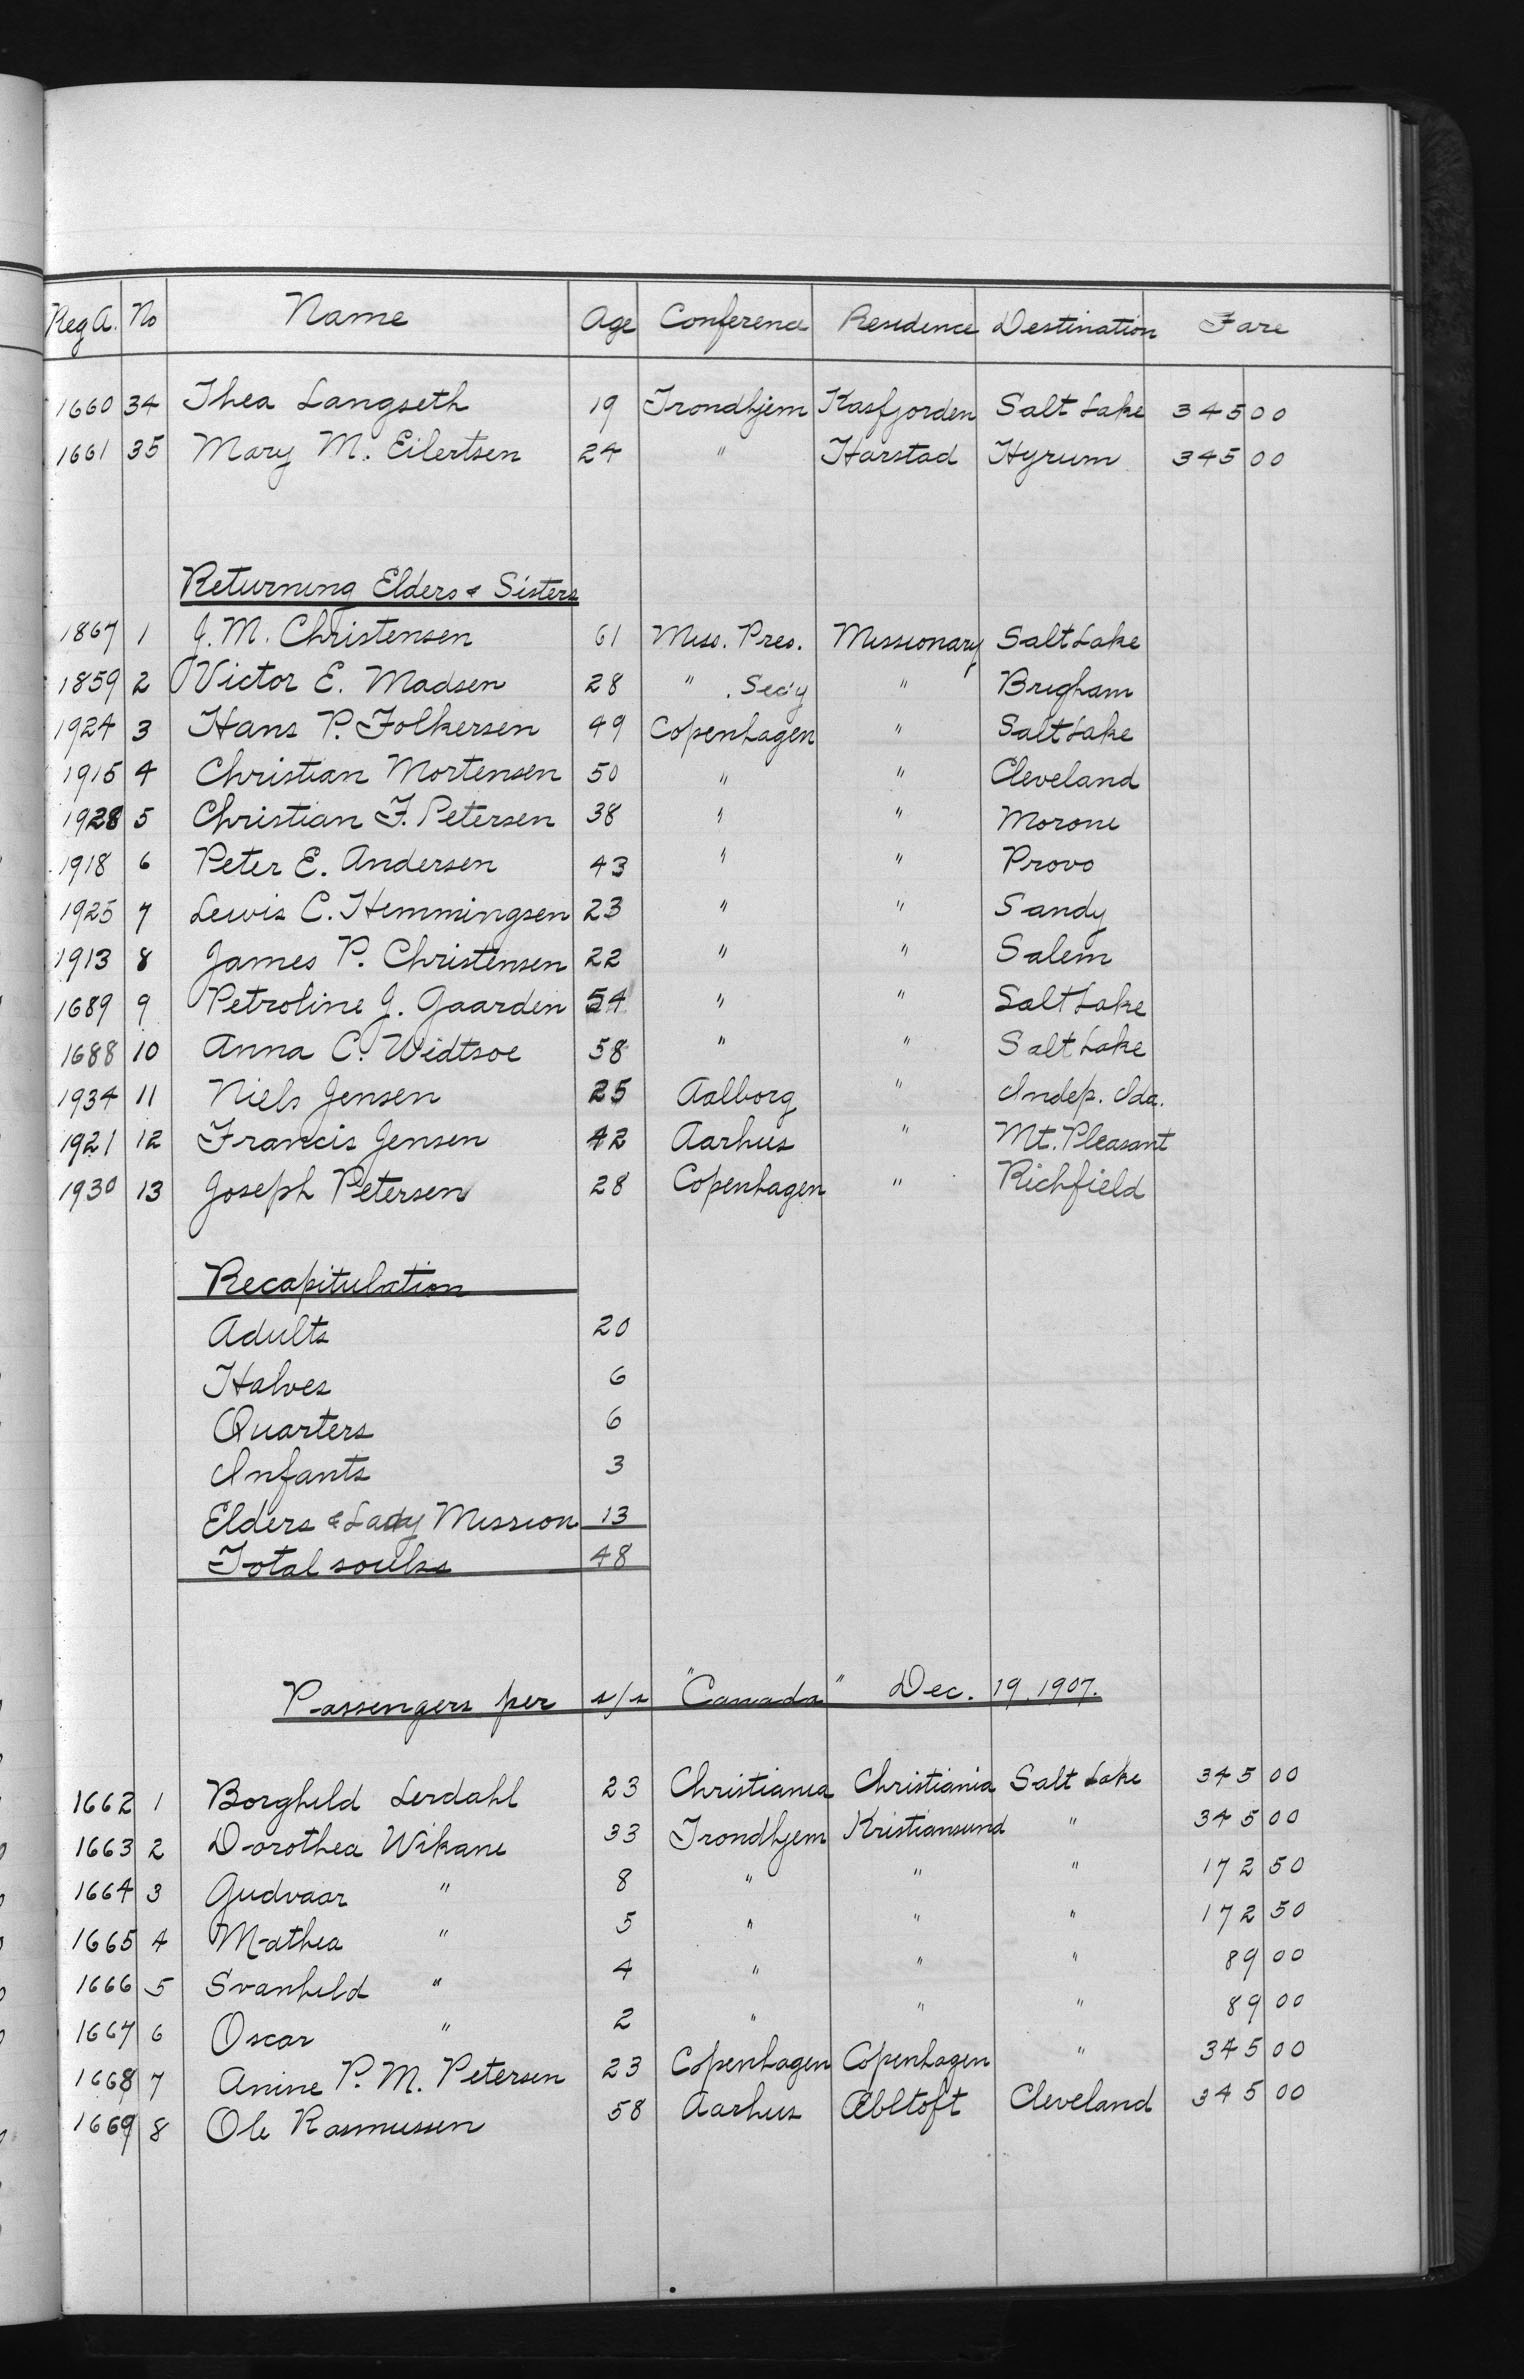 Reg A. No Name Age Conference Residence Destination Fare
1660 34 Thea Langseth 19 Trondhjem Kasfjorden Salt Lake 345 00
1661 35 Mary M. Eilertsen 24 " Harstad Hyrum 345 00
Returning Elders & Sisters
1867 1 J. M. Christensen 61 Miss. Pres. Missionary Salt Lake
1859 2 Victor E. Madsen 28 " Sec'y " Brigham
1924 3 Hans P. Folkersen 49 Copenhagen " Salt Lake
1915 4 Christian Mortensen 50 " " Cleveland
1928 5 Christian F. Petersen 38 " " Moroni
1918 6 Peter E. Andersen 43 " " Provo
1925 7 Lewis C. Hemmingsen 23 " " Sandy
1913 8 James P. Christensen 22 " " Salem
1689 9 Petroline J. Gaarden 54 " " Salt Lake
1688 10 Anna C. Widtsoe 58 " " Salt Lake
1934 11 Niels Jensen 25 Aalborg " Indep. Ida.
1921 12 Francis Jensen 42 Aarhus " Mt. Pleasant
1930 13 Joseph Petersen 28 Copenhagen " Richfield
Recapitulation
Adults 20
Halves 6
Quarters 6
Infants 3
Elders & Lady Mission 13
Total souls 48
Passengers per s/s "Canada" Dec. 19. 1907.
1662 1 Borghild Lerdahl 23 Christiania Christiania Salt Lake 345 00
1663 2 Dorothea Wikane 33 Trondhjem Kristiansund " 345 00
1664 3 Gudvaar " 8 " " " 172 50
1665 4 Mathea " 5 " " " 172 50
1666 5 Svanhild " 4 " " " 89 00
1667 6 Oscar " 2 " " " 89 00
1668 7 Anine P. M. Petersen 23 Copenhagen Copenhagen " 345 00
1669 8 Ole Rasmussen 58 Aarhus Æbltoft Cleveland 345 00